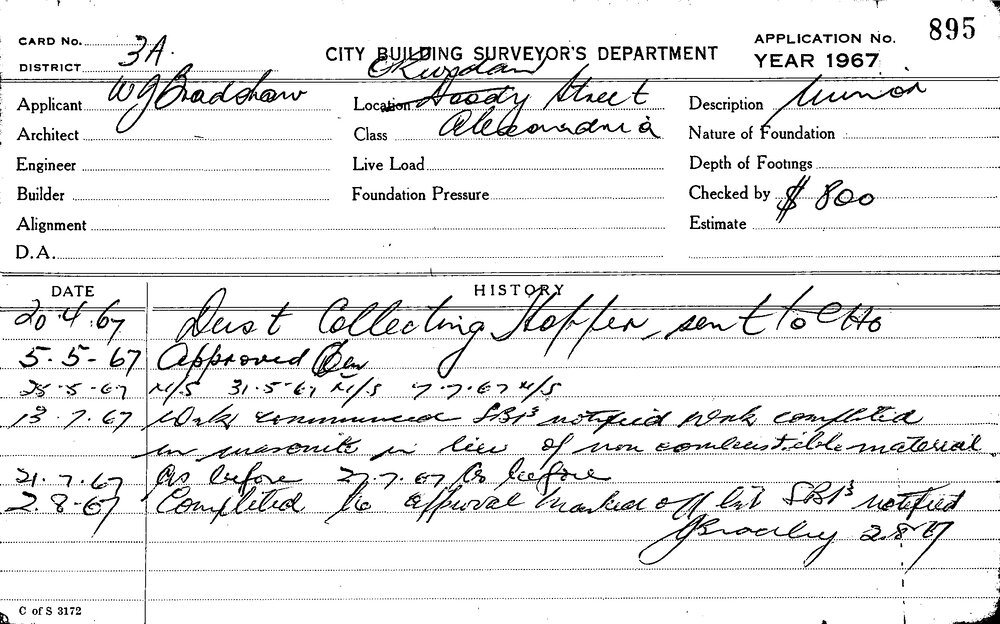 895
CARD No.
3A.
DISTRICT
CITY BUILDING SURVEYOR'S DEPARTMENT
APPLICATION No.
YEAR 1967
Applicant W J Bradshaw
Location Street
Description Minor
Architect
Class Alexandria
Nature of Foundation
Engineer
Live Load
Depth of Footings
Builder
Foundation Pressure
Checked by $ 800
Alignment
Estimate
D.A.
DATE
HISTORY
20.4.67 Dust Collecting Hopper, sent to CHO
5-5-67 Approved
25-5-67 N/S 31-5-67 N/S 7-7-67 N/S
13.7.67 Work commenced notified Work completed
in masonite in lieu of non combustible material
21.7.67 As before 27.7.67 As before
2.8.67 Completed to approval marked off list notified
2.8.67
C of S 3172